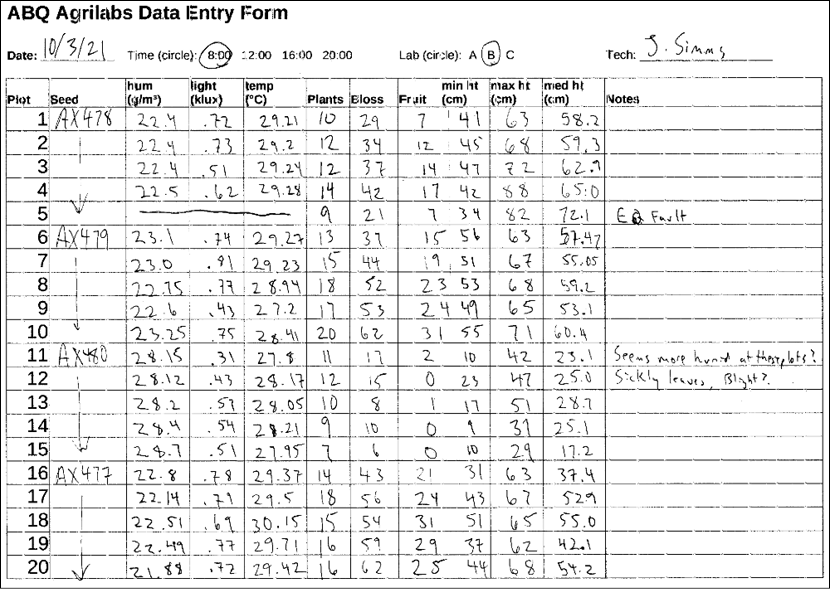 ABQ Agrilabs Data Entry Form
Date: 10/3/21 Time (circle): 8:00 12:00 16:00 20:00 Lab (circle): A B C Tech: J. Simms
Plot Seed hum (g/m³) light (klux) temp (°C) Plants Bloss Fruit min ht (cm) max ht (cm) med ht (cm) Notes
1 AX478 22.4 .72 29.21 10 29 7 41 63 58.2
2 22.4 .73 29.2 12 34 12 45 68 59.3
3 22.4 .51 29.24 12 37 14 47 72 62.9
4 22.5 .62 29.28 14 42 17 42 88 65.0
5 9 21 7 34 82 72.1 Fault
6 AX479 23.1 .74 29.27 13 37 15 56 63 57.47
7 23.0 .91 29.23 15 44 19 51 67 55.05
8 22.75 .77 28.94 18 52 23 53 68 59.2
9 22.6 .43 27.2 17 53 24 49 65 53.1
10 23.25 .75 28.41 20 62 31 55 71 60.4
11 AX480 28.15 .31 27.8 11 17 2 10 42 23.1 Seems more humid at these plots?
12 28.12 .43 28.17 12 15 0 23 47 25.0 Sickly leaves, Blight?
13 28.2 .57 28.05 10 8 1 17 51 28.7
14 28.4 .54 28.21 9 10 0 9 31 25.1
15 28.7 .51 27.95 7 6 0 10 29 17.2
16 AX477 22.8 .78 29.37 14 43 21 31 63 37.4
17 22.14 .71 29.5 18 56 24 43 67 529
18 22.51 .69 30.15 15 54 31 51 65 55.0
19 22.49 .77 29.71 16 59 29 37 62 42.1
20 21.88 .72 29.42 16 62 25 44 68 54.2